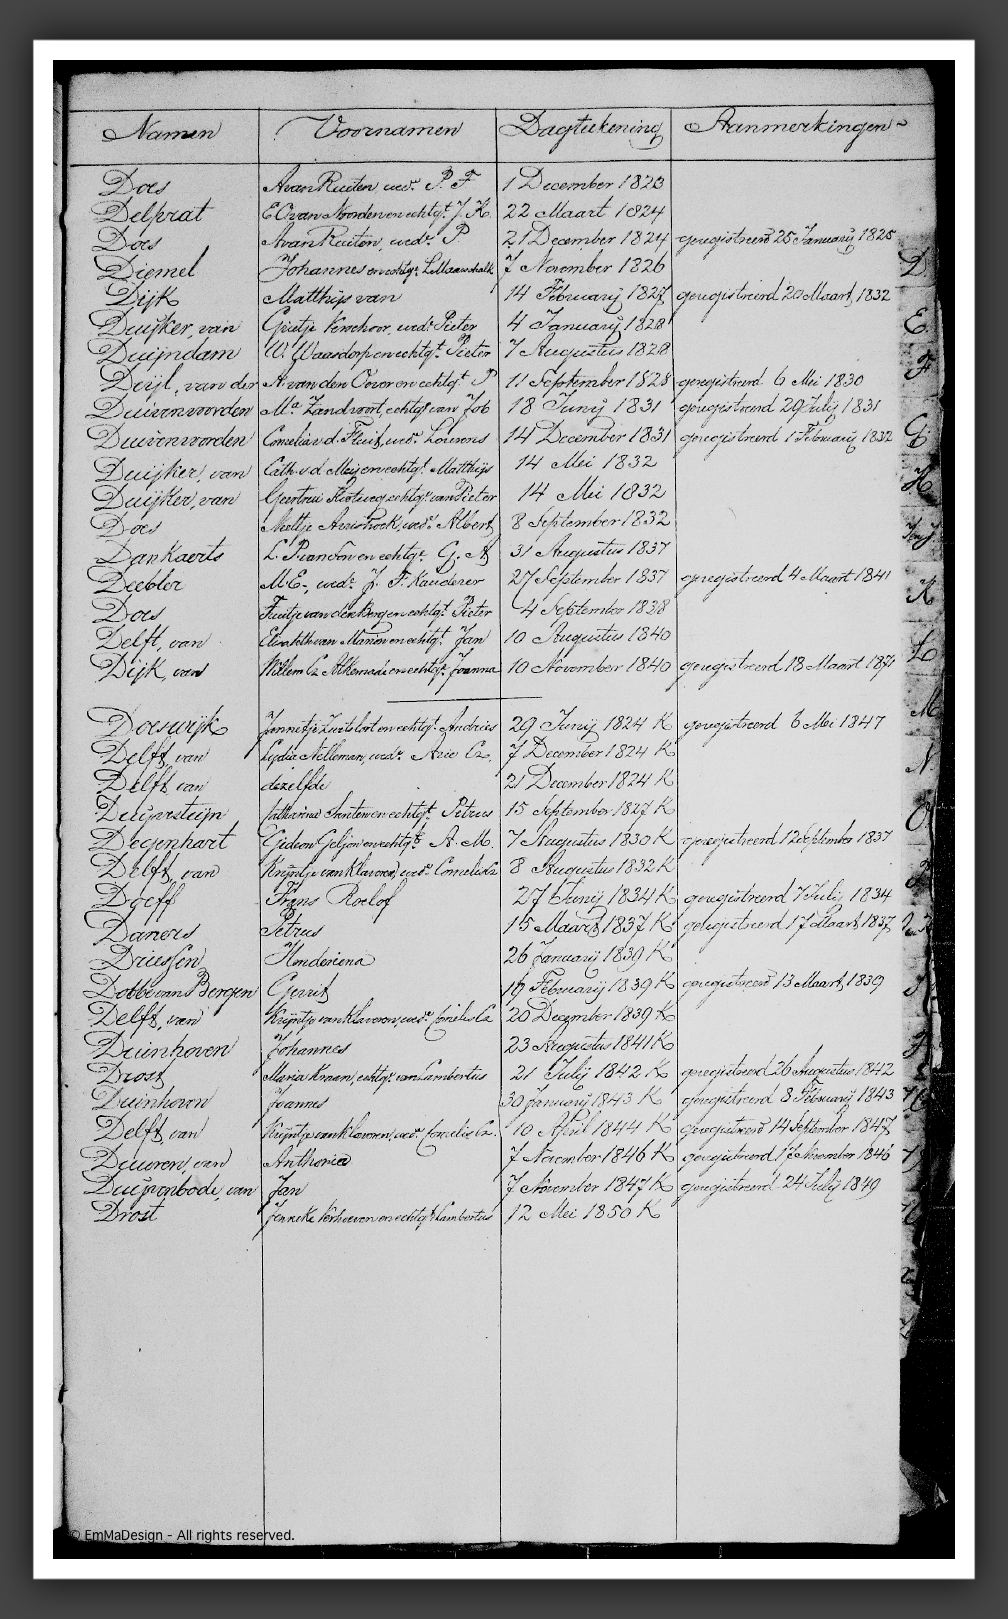 Namen Voornamen Dagteekening Aanmerkingen
Does A van Ruiten wedᵉ P. F 1 December 1823
Delprat E O van Noorden en echtgᵗ J. K. 22 Maart 1824
Does A van Ruiten, wedᵉ P. 21 December 1824 geregistreerd 25 Januarij 1825
Diemel Johannes en echtgᵉ L. Maarschalk 7 November 1826
Dijk Matthijs van 14 Februarij 1827 geregistreerd 20 Maart 1832
Duijker, van Grietje Verschoor, wedᵉ Pieter 4 Januarij 1828
Duijndam W. Waasdorp en echtgᵗ Pieter 7 Augustus 1828
Deijl, van der A van den Oever en echtgᵗ P 11 September 1828 geregistreerd 6 Mei 1830
Duivenvoorden Mᵃ Zandvoort, echtgᵉ van Job 18 Junij 1831 geregistreerd 29 Julij 1831
Duivenvoorden Cornelia v.d. Fluit, wedᵉ Lourens 14 December 1831 geregistreerd 1 Februarij 1832
Duijker, van Cath. v d Meij en echtgᵗ Matthijs 14 Mei 1832
Duijker, van Geertrui echtgᵉ van Pieter 14 Mei 1832
Does Neeltje wedᵉ Albert 8 September 1832
Dankaerts L. en echtgᵉ G. A 31 Augustus 1837
Deebler M. E., wedᵉ J. F. Kauderer 27 September 1837 geregistreerd 4 Maart 1841
Does Fluitje van den Berg en echtgᵗ Pieter 4 September 1838
Delft, van Elisabeth van en echtgᵗ Jan 10 Augustus 1840
Dijk, van Willem Cz Alkemade en echtgᵉ Joanna 10 November 1840 geregistreerd 18 Maart 1871
Doeswijk Jannetje Zuiteloot en echtgᵗ Andries 29 Junij 1824 K geregistreerd 6 Mei 1847
Delft, van Lijdia Nelleman, wedᵉ Arie Cz. 7 December 1824 K
Delft van dezelfde 21 December 1824 K
Deupersteijn Catharina Santen en echtgᵗ Petrus 15 September 1827 K
Degenhart Gideon Geljon en echtgᵗᵉ A. M. 7 Augustus 1830 K geregistreerd 12 September 1837
Delft, van Krijntje van Klaveren, wedᵉ Cornelis Cz 8 Augustus 1832 K
Doeff Frans Roelof 27 Junij 1834 K geregistreerd 7 Julij 1834
Daners Petrus 15 Maart 1837 K geregistreerd 17 Maart 1837
Driessen Hendericna 26 Januarij 1839 K
Dobbe van Bergen Gerrit 19 Februarij 1839 K geregistreerd 13 Maart 1839
Delft, van Krijntje van Klaveren, wedᵉ Cornelis Cz 20 December 1839 K
Duinhoven Johannes 23 Augustus 1841 K
Drost Maria Kraan, echtgᵉ van Lambertus 21 Julij 1842 K geregistreerd 26 Augustus 1842
Duinhoven Joannes 30 Januarij 1843 K geregistreerd 8 Februarij 1843
Delft, van Krijntje van Klaveren, wedᵉ Cornelis Cz. 10 April 1844 K geregistreerd 14 September 1847
Duuren, van Anthonia 7 November 1846 K geregistreerd 17 November 1846
Duijvenbode, van Jan 7 November 1847 K geregistreerd 24 Julij 1849
Drost Janneke Verhoeven en echtgᵗ Lambertus 12 Mei 1850 K
D
E
F
G
H
K
L
M
N
O
© EmMaDesign - All rights reserved.